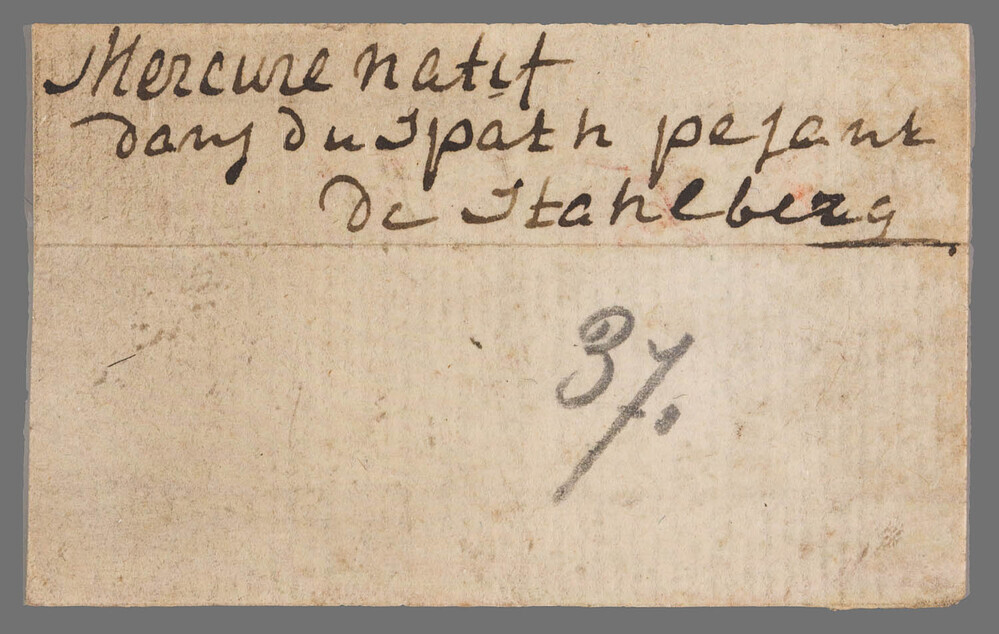 Mercure natif
dans du Spath pesant
de Stahlberg
37.